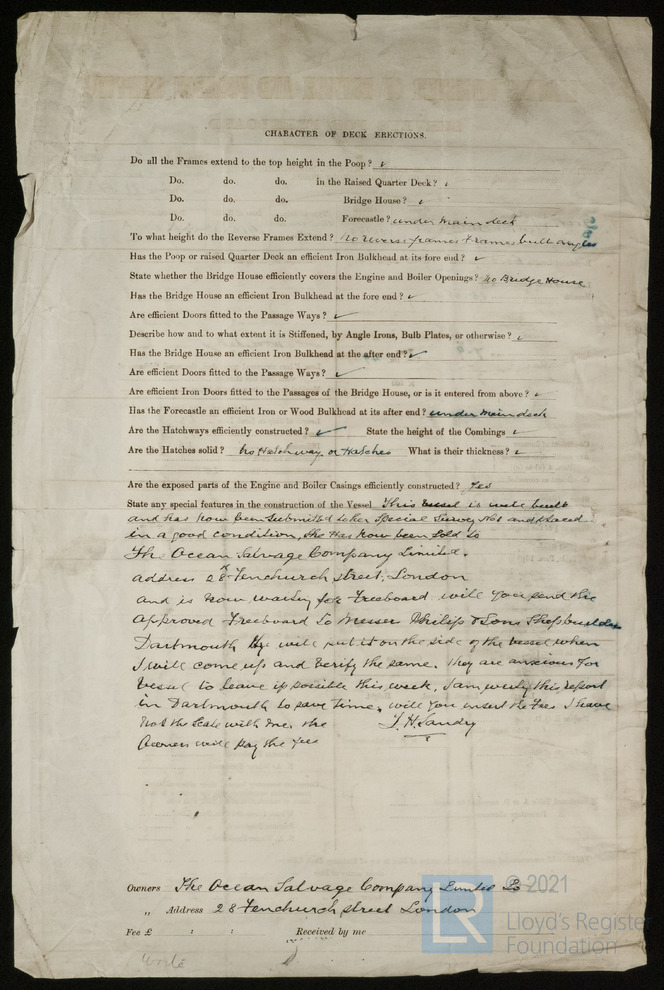 CHARACTER OF DECK ERECTIONS.
Do all the Frames extend to the top height in the Poop? ✓
Do. do. do. in the Raised Quarter Deck? ✓
Do. do. do. Bridge House? ✓
Do. do. do. Forecastle? under main deck
To what height do the Reverse Frames Extend? No reverse frames Frames bulb angles
Has the Poop or raised Quarter Deck an efficient Iron Bulkhead at its fore end? ✓
State whether the Bridge House efficiently covers the Engine and Boiler Openings? No Bridge House
Has the Bridge House an efficient Iron Bulkhead at the fore end? ✓
Are efficient Doors fitted to the Passage Ways? ✓
Describe how and to what extent it is Stiffened, by Angle Irons, Bulb Plates, or otherwise? ✓
Has the Bridge House an efficient Iron Bulkhead at the after end? ✓
Are efficient Doors fitted to the Passage Ways? ✓
Are efficient Iron Doors fitted to the Passages of the Bridge House, or is it entered from above? ✓
Has the Forecastle an efficient Iron or Wood Bulkhead at its after end? under main deck
Are the Hatchways efficiently constructed? ✓ State the height of the Combings ✓
Are the Hatches solid? No Hatchway or Hatches What is their thickness? ✓
Are the exposed parts of the Engine and Boiler Casings efficiently constructed? Yes
State any special features in the construction of the Vessel This vessel is well built
and has now been submitted to her Special Survey No1 and placed
in a good condition, She has now been sold to
The Ocean Salvage Company Limited.
address 28 Fenchurch street, London
and is now waiting for Freeboard will you send the
approved Freeboard to Messrs Philip & Sons Shipbuilders
Dartmouth they will put it on the side of the vessel when
I will come up and verify the same. They are anxious for
vessel to leave if possible this week, I am writing this report
in Dartmouth to save time, will you insert the Fees I have
not the scale with me. the J. H. Sandry
Owners will pay the fee
Owners The Ocean Salvage Company Limted Lo
„ Address 28 Fenchurch street London
Fee £ : : Received by me
© 2021
LR
Lloyd's Register
Foundation